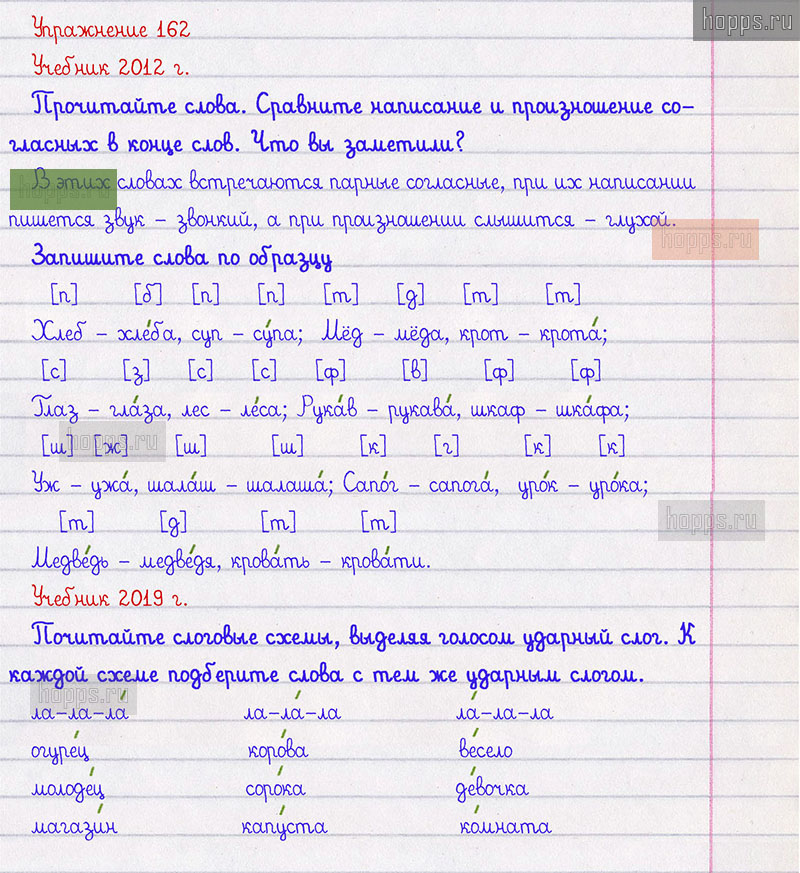 hopps.ru
Упражнение 162
Учебник 2012 г.
Прочитайте слова. Сравните написание и произношение со-
гласных в конце слов. Что вы заметили?
В этих словах встречаются парные согласные, при их написании
hopps.ru
пишется звук – звонкий, а при произношении слышится – глухой.
hopps.ru
Запишите слова по образцу
[п] [б] [п] [п] [т] [д] [т] [т]
Хлеб – хле́ба, суп – су́па; Мёд – мёда, крот – крота́;
[с] [з] [с] [с] [ф] [в] [ф] [ф]
Глаз – гла́за, лес – ле́са; Рука́в – рукава́, шкаф – шка́фа;
[ш] [ж] [ш] [ш] [к] [г] [к] [к]
hopps.ru
Уж – ужа́, шала́ш – шалаша́; Сапо́г – сапога́, уро́к – уро́ка;
[т] [д] [т] [т]
hopps.ru
Медве́дь – медве́дя, крова́ть – крова́ти.
Учебник 2019 г.
Почитайте слоговые схемы, выделяя голосом ударный слог. К
каждой схеме подберите слова с тем же ударным слогом.
hopps.ru
ла-ла-ла́ ла-ла́-ла ла́-ла-ла
огуре́ц коро́ва ве́село
молоде́ц соро́ка де́вочка
магази́н капу́ста ко́мната